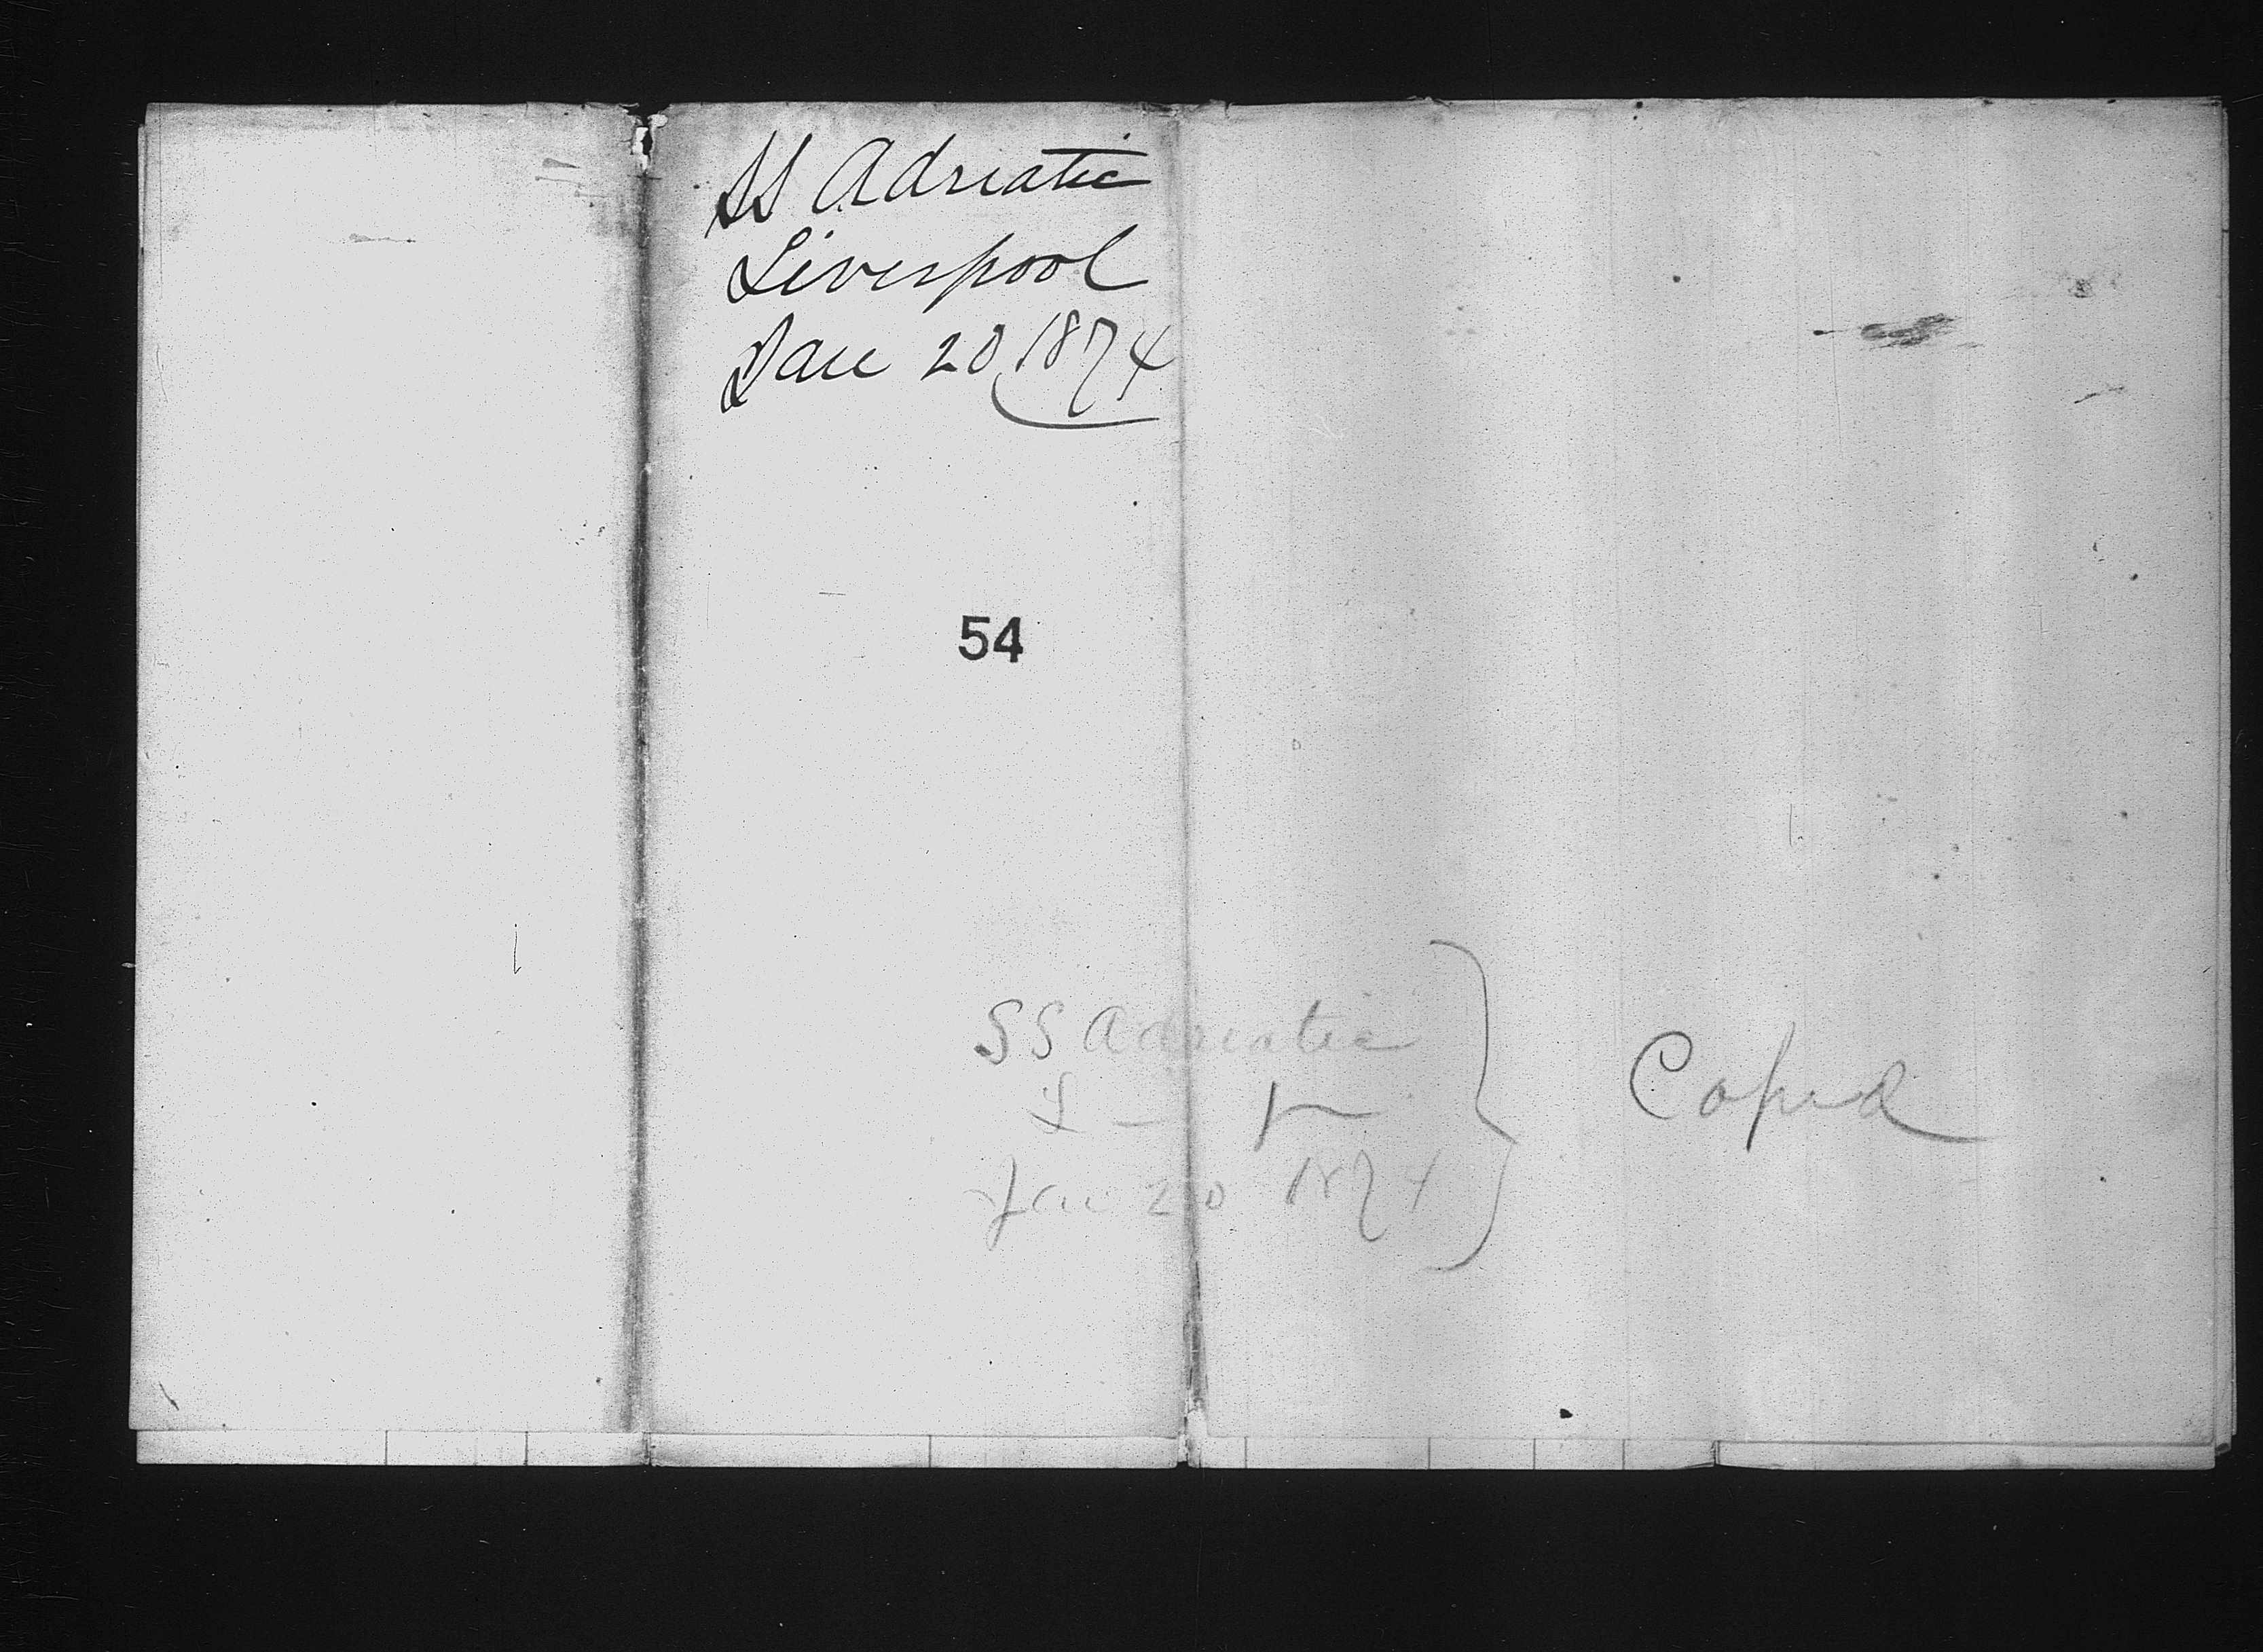 SS Adriatic
Liverpool
Jan 20, 1874
54
SS Adriatic
L — p —
Jan 20 1874
Copied